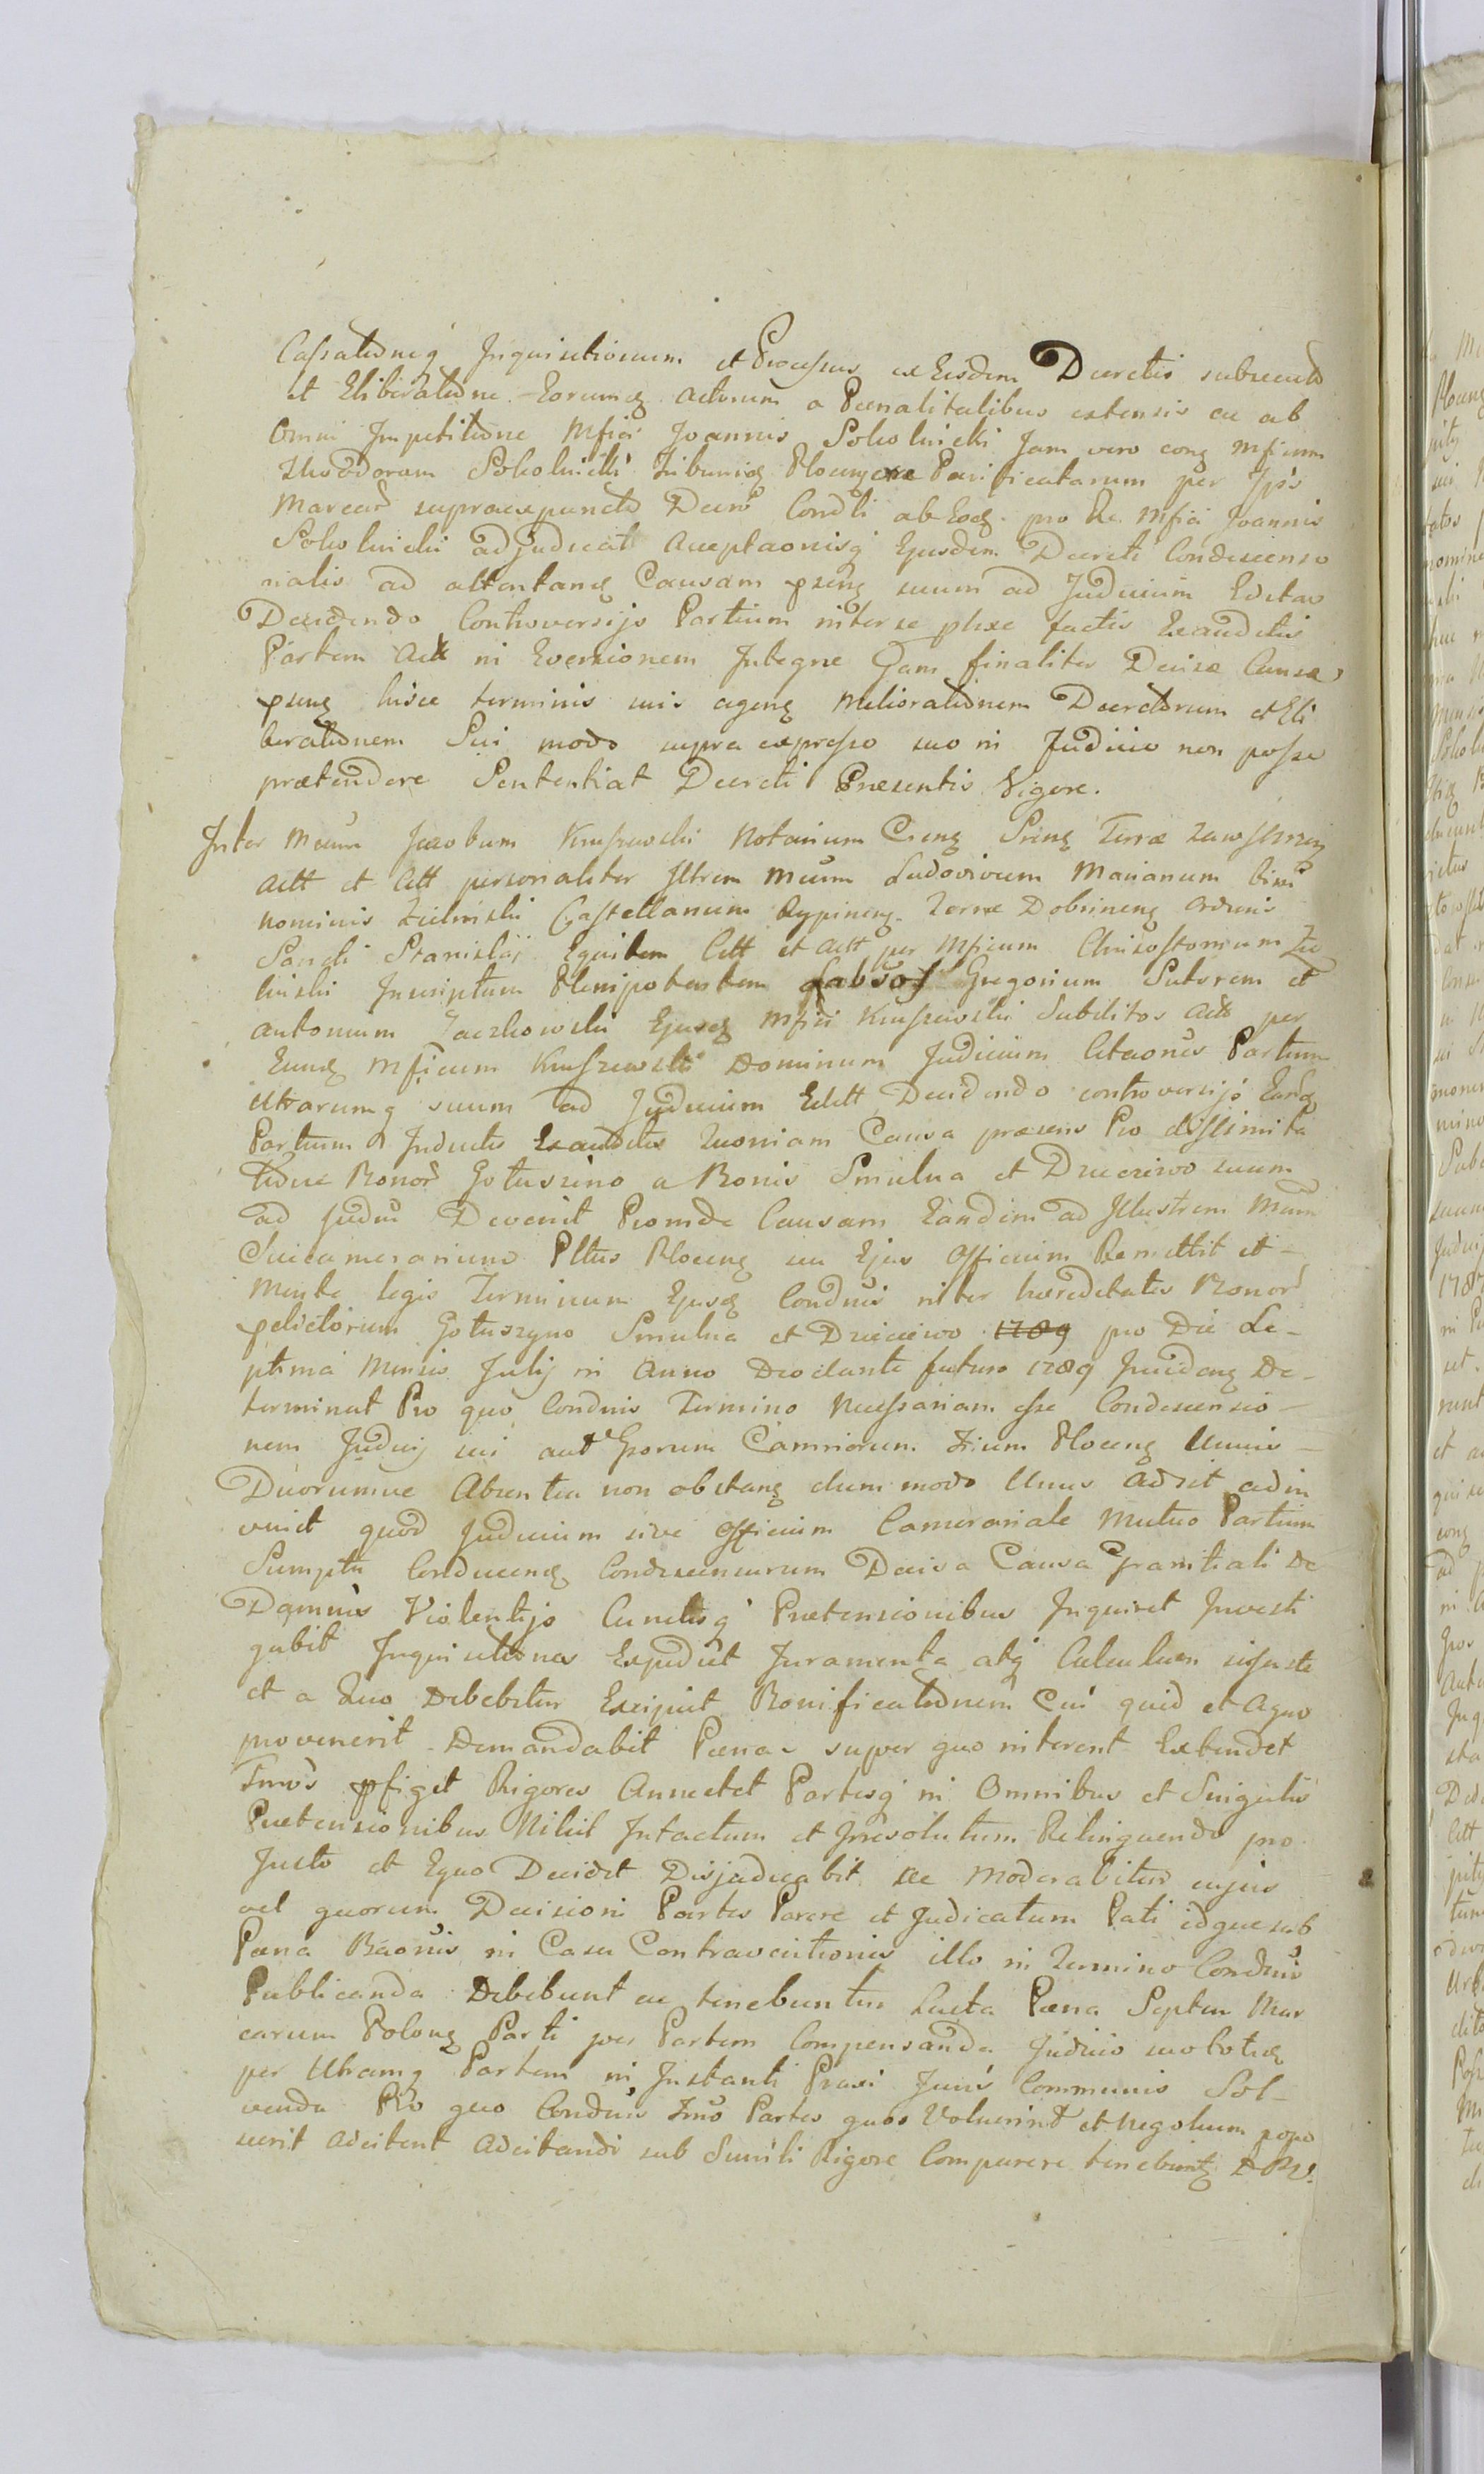 Cassationeq Inquisitionum et Processus ex Eisdem Decretis subsecuto
et Eliberatione Eorumq Actorum a Pœnalitatibus extensis ac ab
Omni Impetitione Mfici Joannis Sokolnicki Jam vero conq Mficum
Theodorum Sokolnicki Tribuniq Plocen Parificatarum per Ipsos
Marcas supraexpuncto Decro Condli ab Eodq pro Re Mfici Joannis
Sokolnicki adjudicat Acceptaonisq Ejusdem Decreti Condescenso
rialis ad attentanq Causam psenq suum ad Judicium Editas
Decidendo Controversijs Partium inter se phxe factis Exauditis
Partem Act in Eversionem Integre Jam finaliter Decisæ Causæ
psenq hisce terminis suis agenq Meliorationem Decretorum et Eli
berationem Sui modo supra expresso suo in Judicio non posse
prætendere Sententiat Decreti Præsentis Vigore.
Inter Mcum Jacobum Kruszewski Notarium Crenq Srenq Terræ Zawskrzen
Actt et Citt personaliter Illrem Mcum Ludovicum Marianum bini
nominis Zielinski Castellanum Rypinenq Terræ Dobrinenq Ordinis
Sancti Stanislai Equitem Citt et Actt per Mficum Chrisostomum Zie
linski Inscriptum Plenipotentem Labsos Gregorium Sutorem et
Antonium Jaczkowski Ejusdq Mfici Kruszewski Subditos Act per
Eundq Mficum Kruszewski Dominum Judicium Citaonis Partium
Utrarumq suum ad Judicium Editt Decidendo controversijs Earq
Partium Inductis Exauditis Quoniam Causa præsens Pro dissimita
tione Bonor Gotuszino a Bonis Smulna et Dziczewo suum
ad Judiu Devenit Proinde Causam Eandem ad Illustrem Mcum
Succamerarium Pltus Plocenq seu Ejus Officium Remittit et
Mente legis Terminum Ejusdq Condnis inter hæreditates Bonor
pdictorum Gotuszyno Smulna et Dzieczewo 1789 pro Die Se-
ptima Mensis Julij in Anno Deo dante futuro 1789 Incidenq De-
terminat Pro quo Condnis Termino Necessariam esse Condescensio-
nem Judicij sui aut Ipsorum Camriorum Trium Plocenq Unius-
Duorumve Absentia non obstanq dum modo Unus Adsit adin
venit quod Judicium sive Officium Camerariale Mutuo Partium
Sumptu Conducenq Condescensurum Decisa Causa Granitiali De
Damnis Violentijs Cunctisq Prætensionibus Inquiret Investi
gabit Inquisitiones Expediet Juramenta atq Calculum si juste
et a Quo Debebitur Excipiet Bonificationem Cui quid et a quo
provenerit Demandabit Pœnas super quo interent Extendet
Tmos pfiget Rigores Annectet Partesq in Omnibus et Singulis
Prætensionibus Nihil Intactum et Irresolutum Relinquendo pro
Justo et Equo Decidet Disjudicabit ac Moderabitur cujus
vel quorum Decisioni Partes Parere et Judicatum Pati idque sub
Pœna Baonis in Casu Contraventionis illo in Termino Condnis
Publicanda Debebunt ac tenebuntur Lucta Pœna Septem Mar
carum Polonq Parti per Partem Compensanda Judicio suo totiq
per Utramq Partem in Instanti Praxi Juris Communis Sol-
venda Pro quo Condnis Tmo Partes quas Voluerint et negotium popo
scerit Adcitent Adcitandi sub Simili Rigore Comparere tenebuntq DPV.